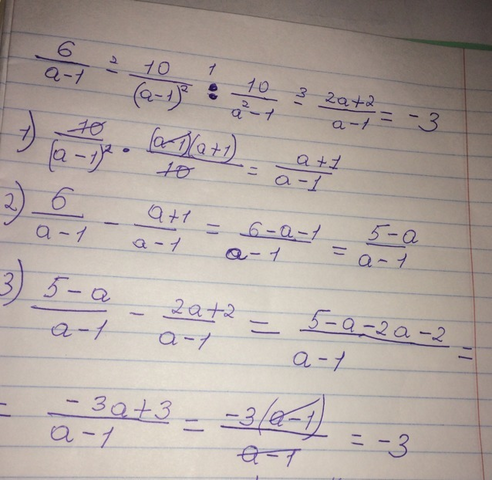 6/(a-1) -² 10/(a-1)² :¹ 10/(a²-1) -³ (2a+2)/(a-1) = -3
1) 10/(a-1)² · (a-1)(a+1)/10 = (a+1)/(a-1)
2) 6/(a-1) - (a+1)/(a-1) = (6-a-1)/(a-1) = (5-a)/(a-1)
3) (5-a)/(a-1) - (2a+2)/(a-1) = (5-a-2a-2)/(a-1) =
= (-3a+3)/(a-1) = -3(a-1)/(a-1) = -3